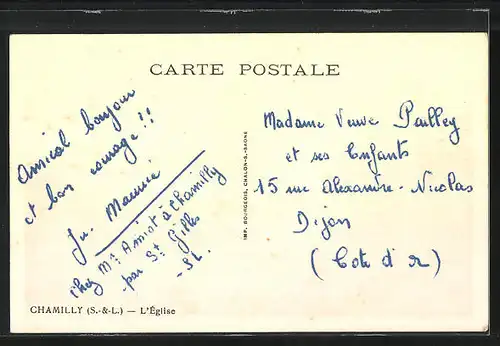 CARTE POSTALE
Amical bonjour
et bon courage!!
Ju. Maurice
chez Mr Amiot à Chamilly
par St Gilles
S.L.
IMP. BOURGEOIS, CHALON-S.-SAONE
Madame Veuve Pailley
et ses Enfants
15 rue Alexandre-Nicolas
Dijon
(Cote d'or)
CHAMILLY (S.-&-L.) — L'Église